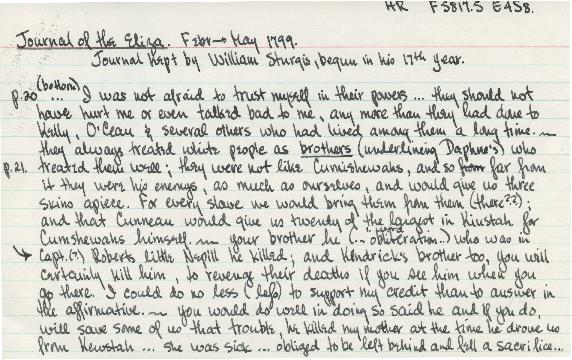 HR F5817.5 E45S.
Journal of the Eliza. Febr → May 1799.
Journal Kept by William Sturgis, begun in his 17th year.
(bottom)
p.20 ... I was not afraid to trust myself in their powers ... they should not
have hurt me or even talked bad to me, any more than they had done to
Kelly, O'Cean & several others who had lived among them a long time. ~
they always treated white people as brothers (underlining Daphne's) who
p.21. treated them well; they were not like Cumshewahs, and so from far from
it they were his enemys, as much as ourselves, and would give us three
skins apiece. For every slave we would bring them from them (there??);
and that Cunneau would give us twenty of the largest in Kiustah for
Cumshewahs himself. ~ your brother he (.. word obliteration ..) who was in
↳ Capt.(?) Roberts Little he killed; and Kendricks brother too, you will
certainly kill him, to revenge their deaths if you see him when you
go there. I could do no less (left) to support my credit than to answer in
the affirmative. ~ you would do well in doing so said he and if you do,
will save some of us that trouble, he killed my mother at the time he drove us
from Kewstah ... she was sick ... obliged to be left behind and fell a sacrifice...